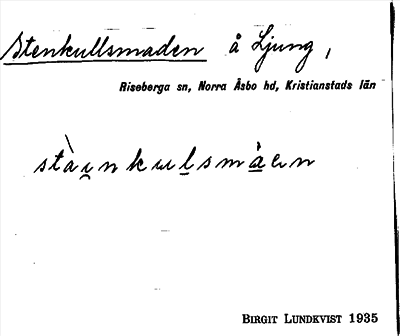 Stenkullsmaden å Ljung,
Riseberga sn, Norra Åsbo hd, Kristianstads län
BIRGIT LUNDKVIST 1935